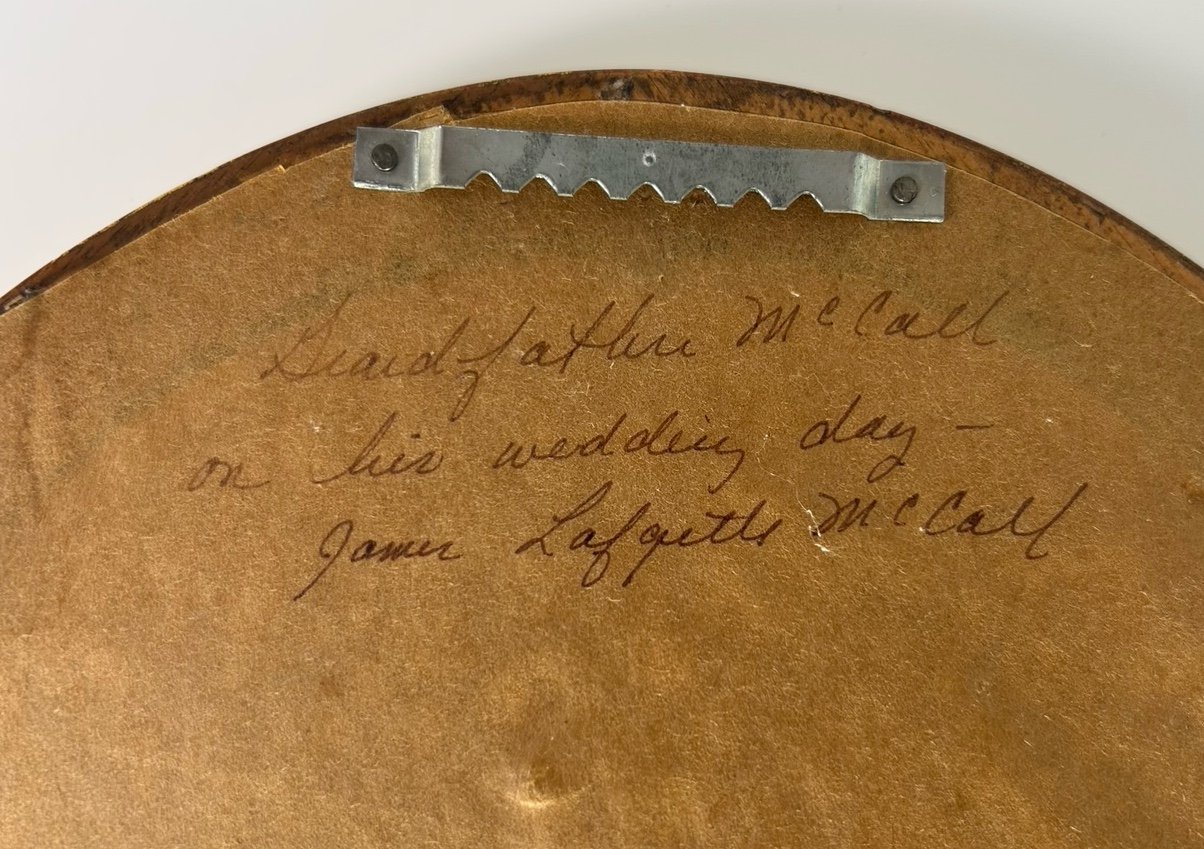 Grandfather McCall
on his wedding day –
James Lafayette McCall